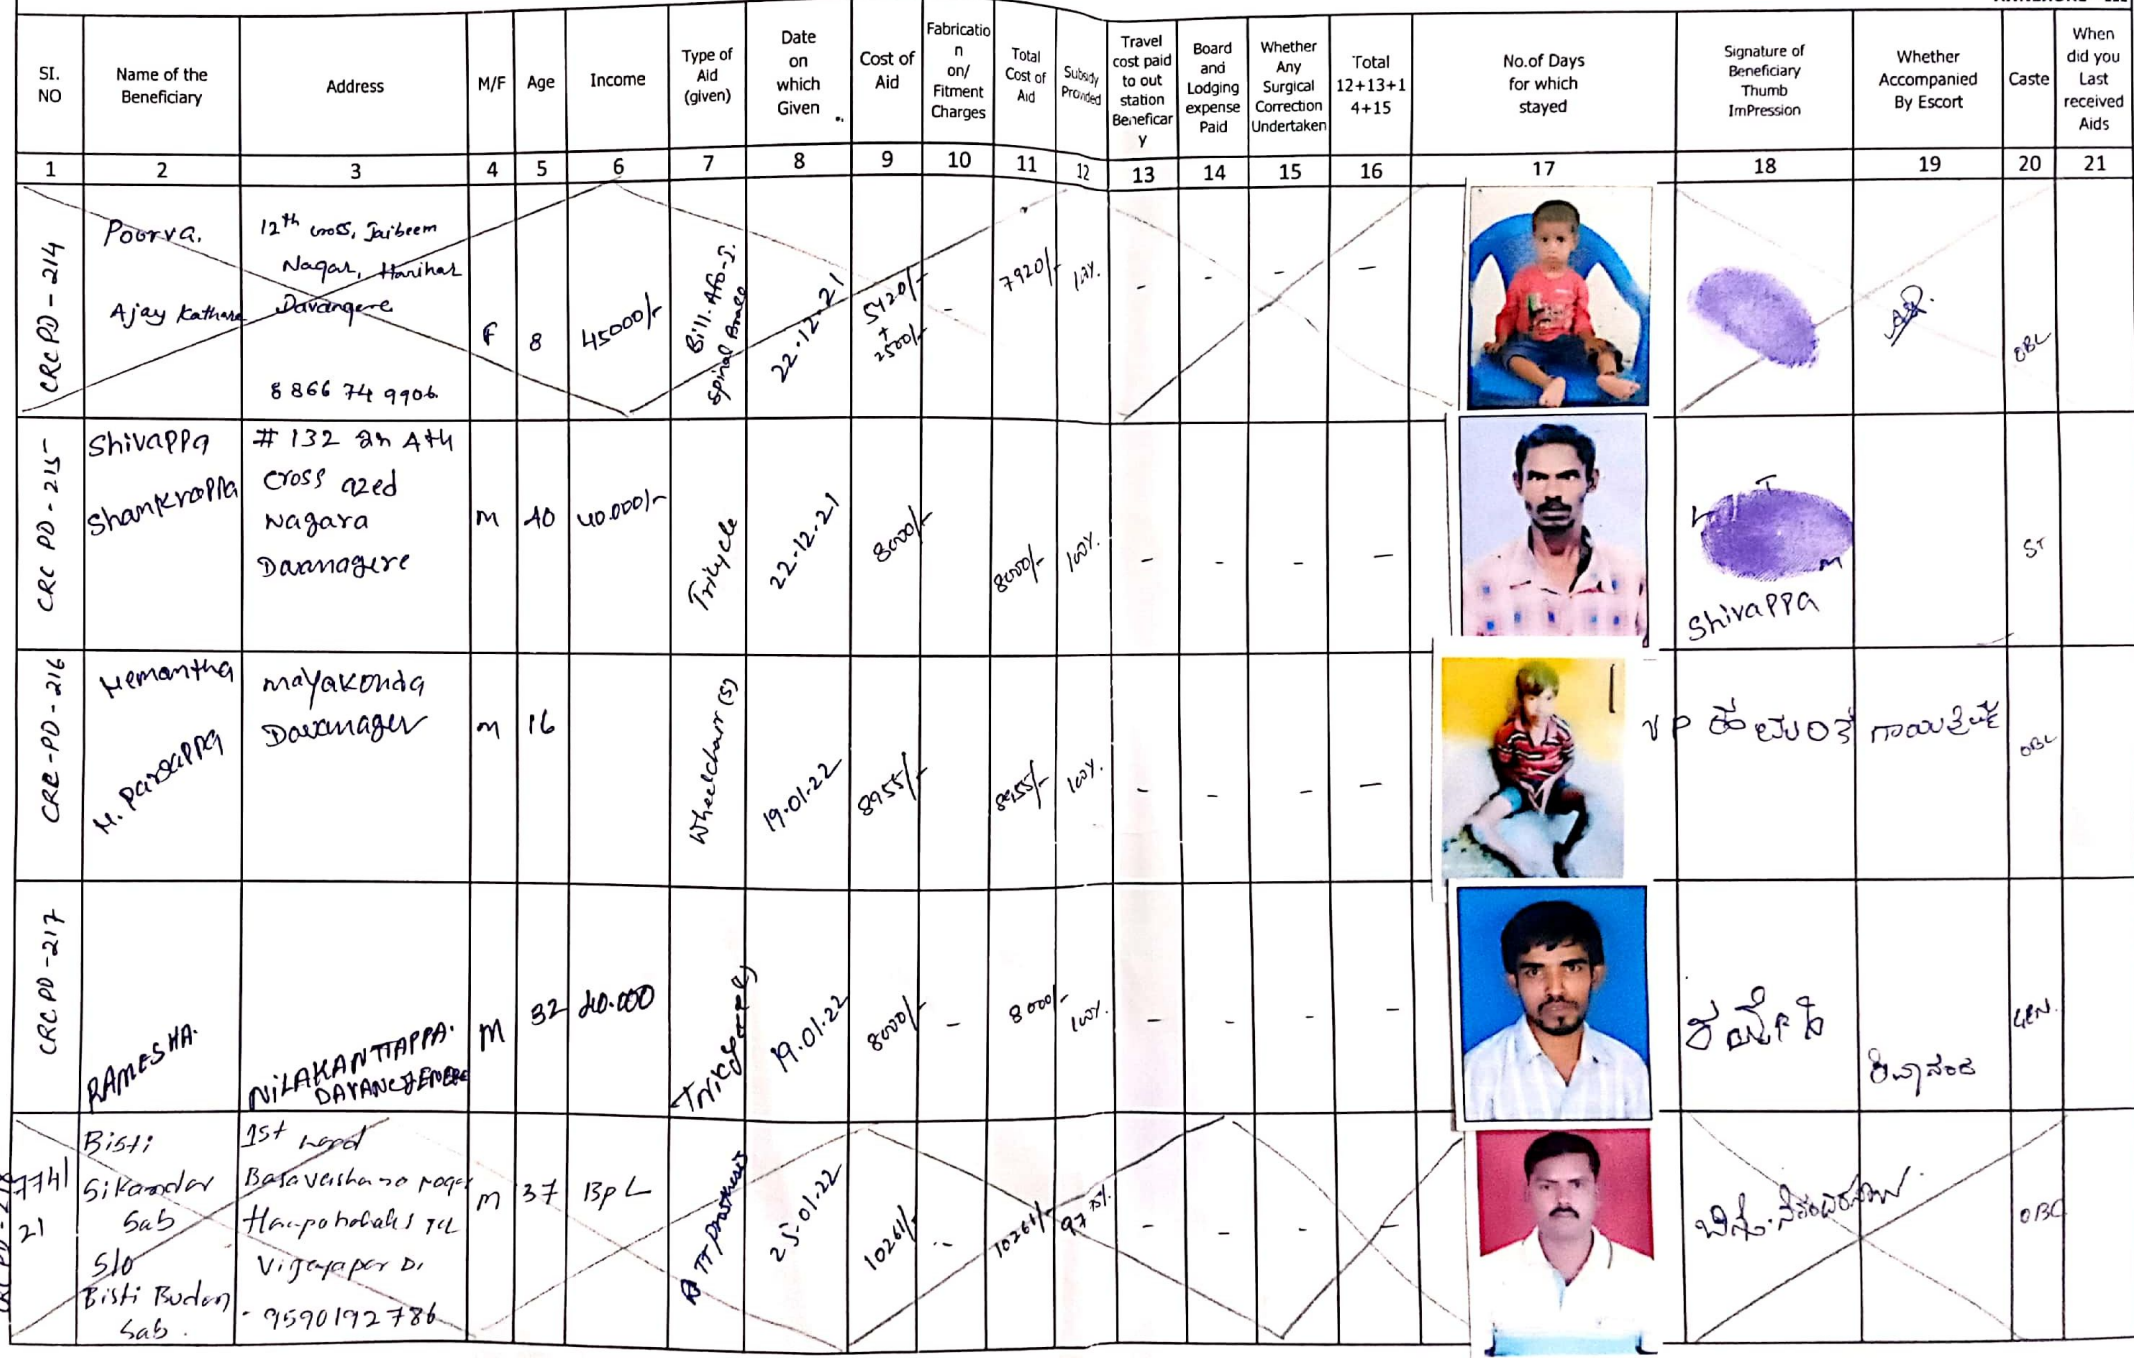 SI. NO
Name of the Beneficiary
Address
M/F
Age
Income
Type of Aid (given)
Date on which Given
Cost of Aid
Fabricatio n on/ Fitment Charges
Total Cost of Aid
Subsidy Provided
Travel cost paid to out station Beneficar y
Board and Lodging expense Paid
Whether Any Surgical Correction Undertaken
Total 12+13+1 4+15
No.of Days for which stayed
Signature of Beneficiary Thumb ImPression
Whether Accompanied By Escort
Caste
When did you Last received Aids
1 2 3 4 5 6 7 8 9 10 11 12 13 14 15 16 17 18 19 20 21
CRC PD - 214
Poorva.
Ajay Kathare
12th cross, Jaibeem
Nagar, Harihar
Davangere
8 866 74 9906
F
8
45000/-
Bill. Afo-J.
Spinal Brace
22.12.21
5420/-
+
2500/-
-
7920/-
- - - -
CRC PD - 215
Shivappa
Shankrappa
# 132 4th
cross azed
Nagara
Davanagere
M
40
40.000/-
Tricycle
22.12.21
8000/-
8000/-
100%.
- - - -
L T
M
Shivappa
ST
CRC-PD-216
Hemantha
H. Parsappa
mayakonda
Davanager
m
16
Wheelchair (S)
19.01.22
8955/-
8955/-
100%.
- - - -
CRC PD -217
RAMESHA.
NILAKANTTAPPA.
M
32
40.000
19.01.22
8000/-
-
8000/-
100%.
- - - -
ರಮೇಶ
ಶಿವಾನಂದ
GEN.
7741
21
Bisti
Sikandar
Sab
S/o
Bisti Budan
Sab.
1st
Vijayapar D.
9590192786
m
37
BPL
TT prosthesis
25.01.22
10261/-
10261/-
- - - -
OBC